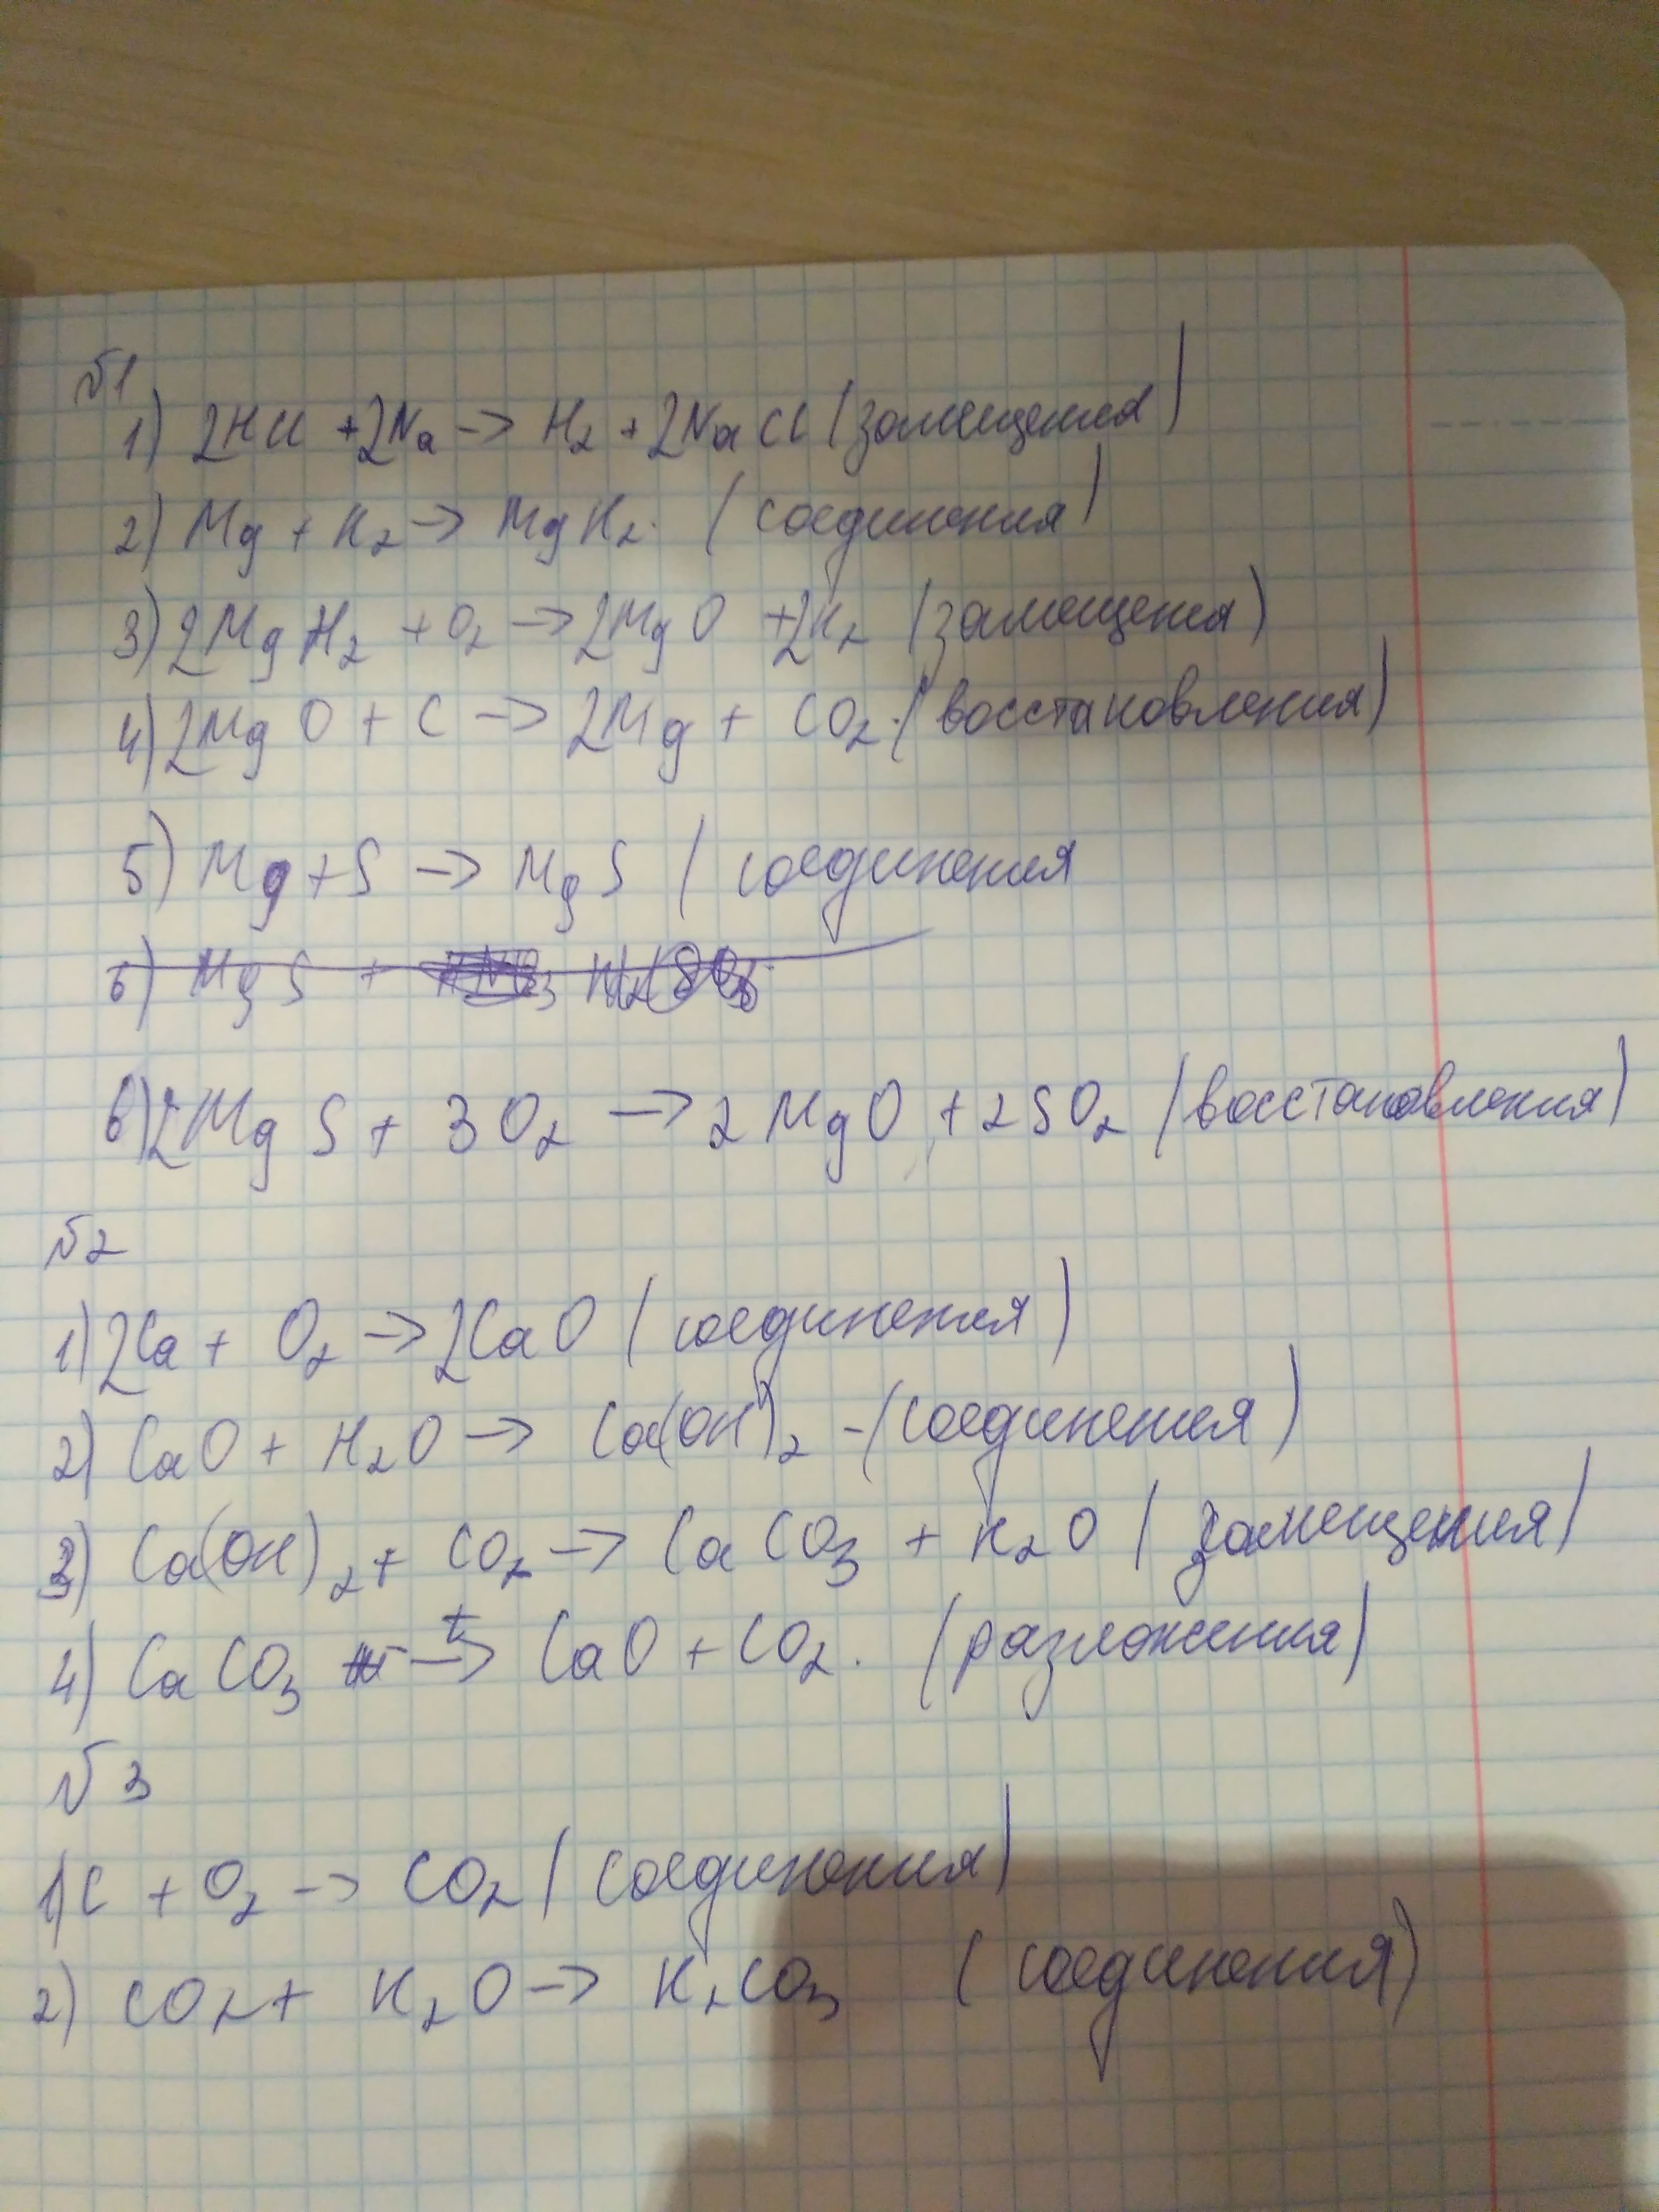 №1
1) 2HCl + 2Na → H₂ + 2NaCl (замещения)
2) Mg + H₂ → MgH₂. (соединения)
3) 2MgH₂ + O₂ → 2MgO + 2H₂ (замещения)
4) 2MgO + C → 2Mg + CO₂. (восстановления)
5) Mg + S → MgS (соединения
6) MgS +
6) 2MgS + 3O₂ → 2MgO + 2SO₂ (восстановления)
№2
1) 2Ca + O₂ → 2CaO (соединения)
2) CaO + H₂O → Ca(OH)₂ - (соединения)
3) Ca(OH)₂ + CO₂ → CaCO₃ + H₂O (замещения)
4) CaCO₃ t→ CaO + CO₂. (разложения)
№3
1) C + O₂ → CO₂ (соединения)
2) CO₂ + H₂O → H₂CO₃ (соединения)